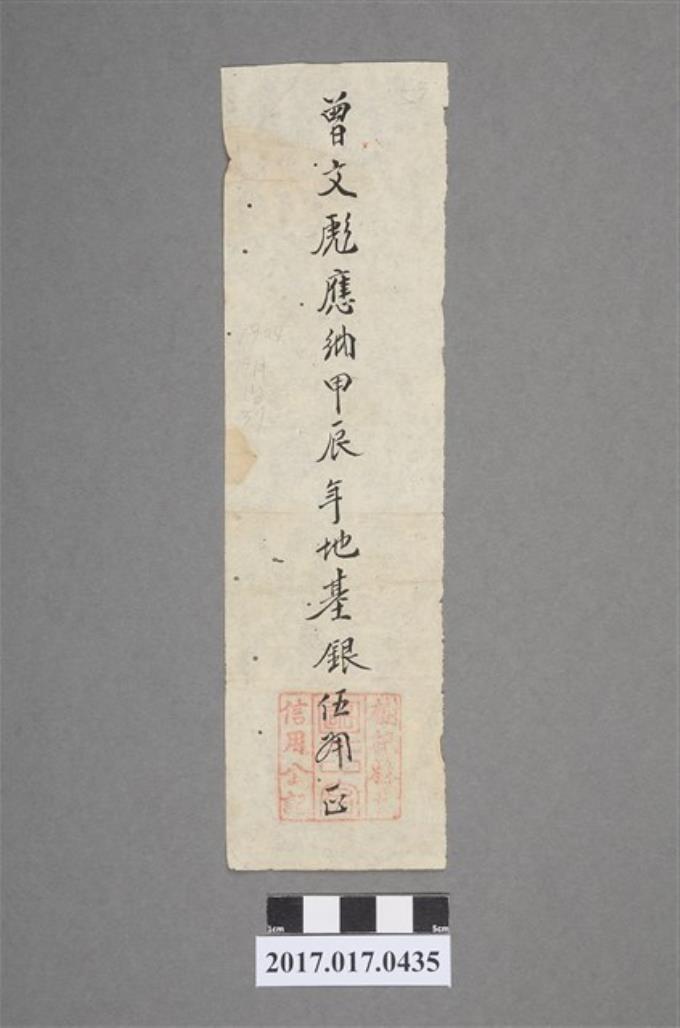 曾文彪應納甲辰年地基銀伍角正
信用公記
1cm 5cm
2017.017.0435